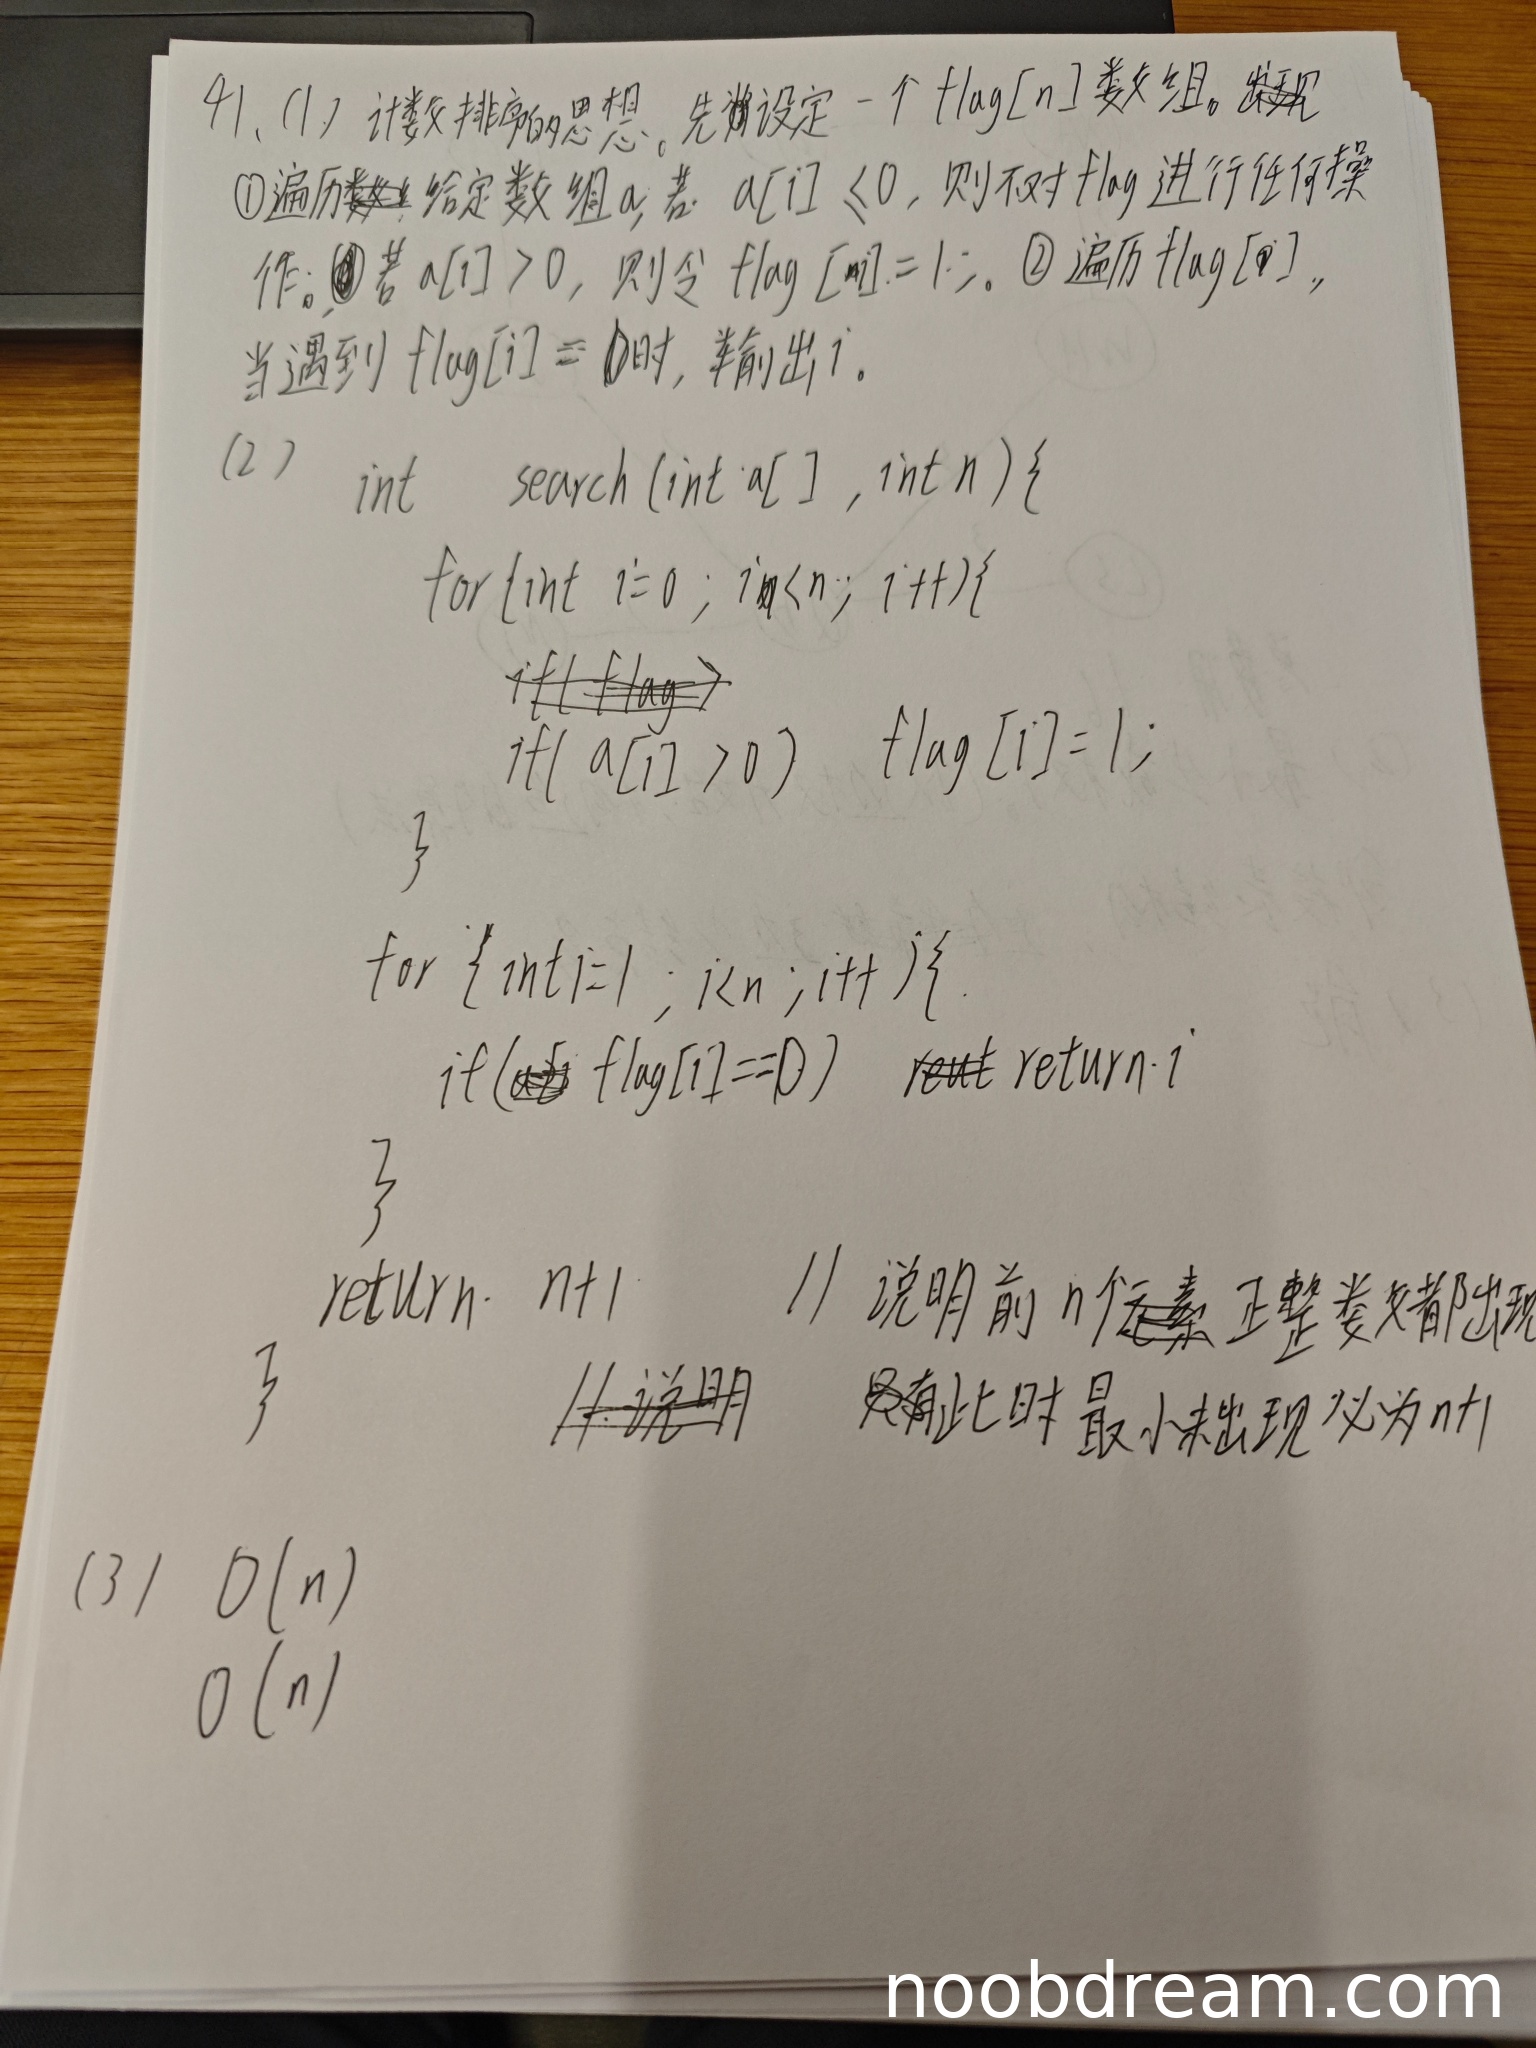 41、(1) 计数排序的思想。先设定一个flag[n]数组。
①遍历给定数组a,若 a[i]≤0,则不对flag进行任何操
作。若a[i]>0,则令flag[i]=1;。②遍历flag[i],
当遇到flag[i]=0时,输出i。
(2) int search(int a[],int n){
for(int i=0; i<n; i++){
if(a[i]>0) flag[i]=1;
}
for {int i=1; i<n; i++){
if(flag[i]==0) return i
}
return n+1 // 说明前n个正整数都出现
} 此时最小未出现必为n+1
(3) O(n)
O(n)
noobdream.com